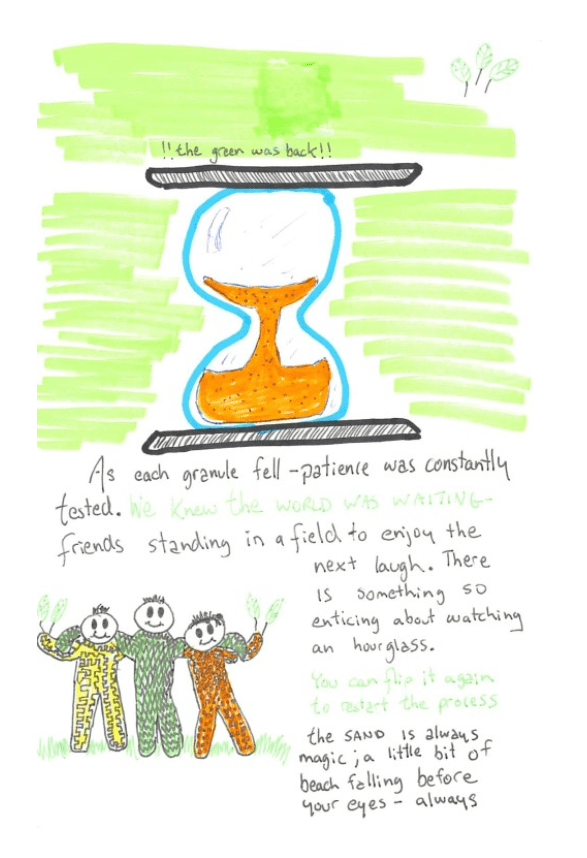 !! the green was back!!
As each granule fell - patience was constantly
tested. We knew the WORLD WAS WAITING-
friends standing in a field to enjoy the
next laugh. There
is something so
enticing about watching
an hourglass.
You can flip it again
to restart the process
the SAND is always
magic; a little bit of
beach falling before
your eyes - always